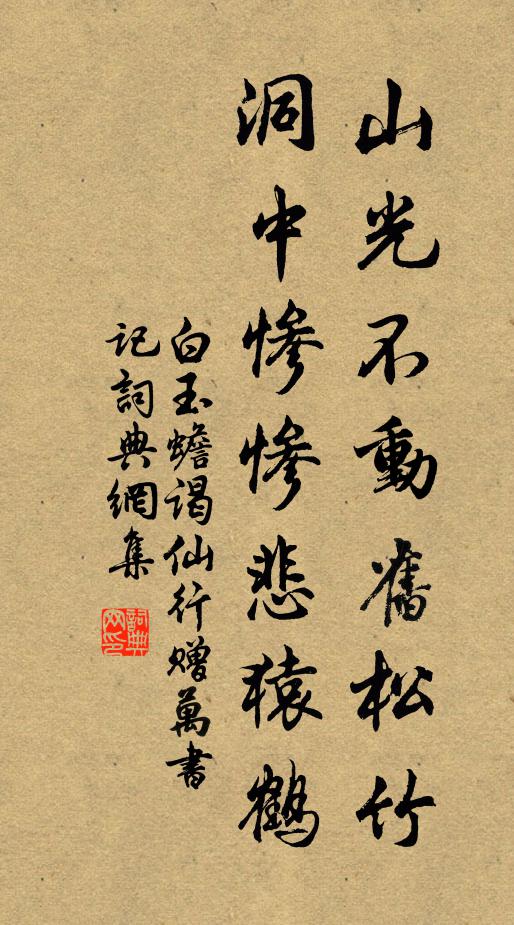 山光不動舊松竹
洞中慘慘悲猿鶴
白玉蟾謁仙行贈萬書
記詞典網集
詞典
网印